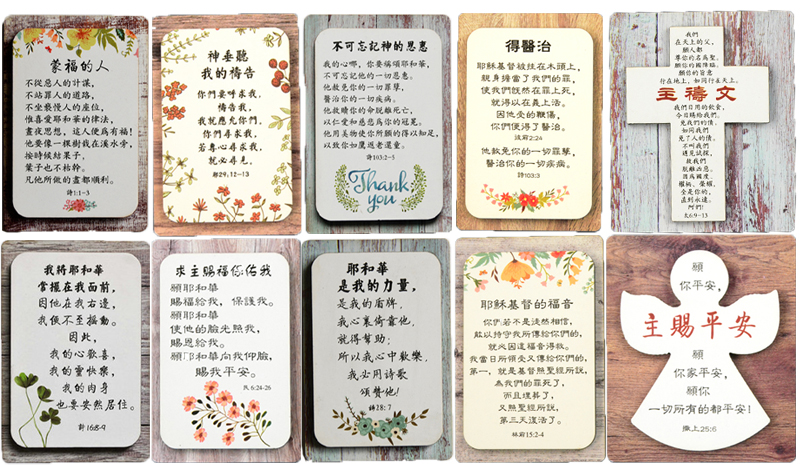 蒙福的人
不從惡人的計謀,
不站罪人的道路,
不坐褻慢人的座位,
惟喜愛耶和華的律法,
晝夜思想,這人便為有福!
他要像一棵樹栽在溪水旁,
按時候結果子,
葉子也不枯幹。
凡他所做的盡都順利。
詩1:1-3
神垂聽
我的禱告
你們要呼求我,
禱告我,
我就應允你們,
你們尋求我,
若專心尋求我,
就必尋見。
耶29,12-13
不可忘記神的恩惠
我的心哪,你要稱頌耶和華,
不可忘記他的一切恩惠。
他赦免你的一切罪孽,
醫治你的一切疾病。
他救贖你的命脫離死亡,
以仁愛和慈悲為你的冠冕。
他用美物使你所願的得以知足,
以致你如鷹返老還童。
詩103:2-5
Thank
you
得醫治
耶穌基督被挂在木頭上,
親身擔當了我們的罪,
使我們既然在罪上死,
就得以在義上活。
因他受的鞭傷,
你們便得了醫治。
彼前2:24
他赦免你的一切罪孽,
醫治你的一切疾病。
詩103:3
我們
在天上的父,
願人都
尊你的名為聖。
願你的國降臨,
願你的旨意
行在地上,如同行在天上。
主禱文
我們日用的飲食,
今日賜給我們。
免我們的債,
如同我們
免了人的債。
不叫我們
遇見試探,
救我們
脫離兇惡。
因為國度、
權柄、榮耀,
全是你的,
直到永遠。
阿們!
太6:9-13
我將耶和華
常擺在我面前,
因他在我右邊,
我便不至搖動。
因此,
我的心歡喜,
我的靈快樂,
我的肉身
也要安然居住。
詩16:8-9
求主賜福你佑我
願耶和華
賜福給我,保護我。
願耶和華
使他的臉光照我,
賜恩給我。
願耶和華向我仰臉,
賜我平安。
民 6:24-26
耶和華
是我的力量,
是我的盾牌,
我心裏倚靠他,
就得幫助;
所以我心中歡樂,
我必用詩歌
頌讚他!
詩28:7
耶穌基督的福音
你們若不是徒然相信,
能以持守我所傳給你們的,
就必因這福音得救。
我當日所領受又傳給你們的,
第一,就是基督照聖經所說,
為我們的罪死了,
而且埋葬了,
又照聖經所說,
第三天復活了。
林前15:2-4
願
你平安,
主賜平安
願
你家平安,
願你
一切所有的都平安!
撒上25:6